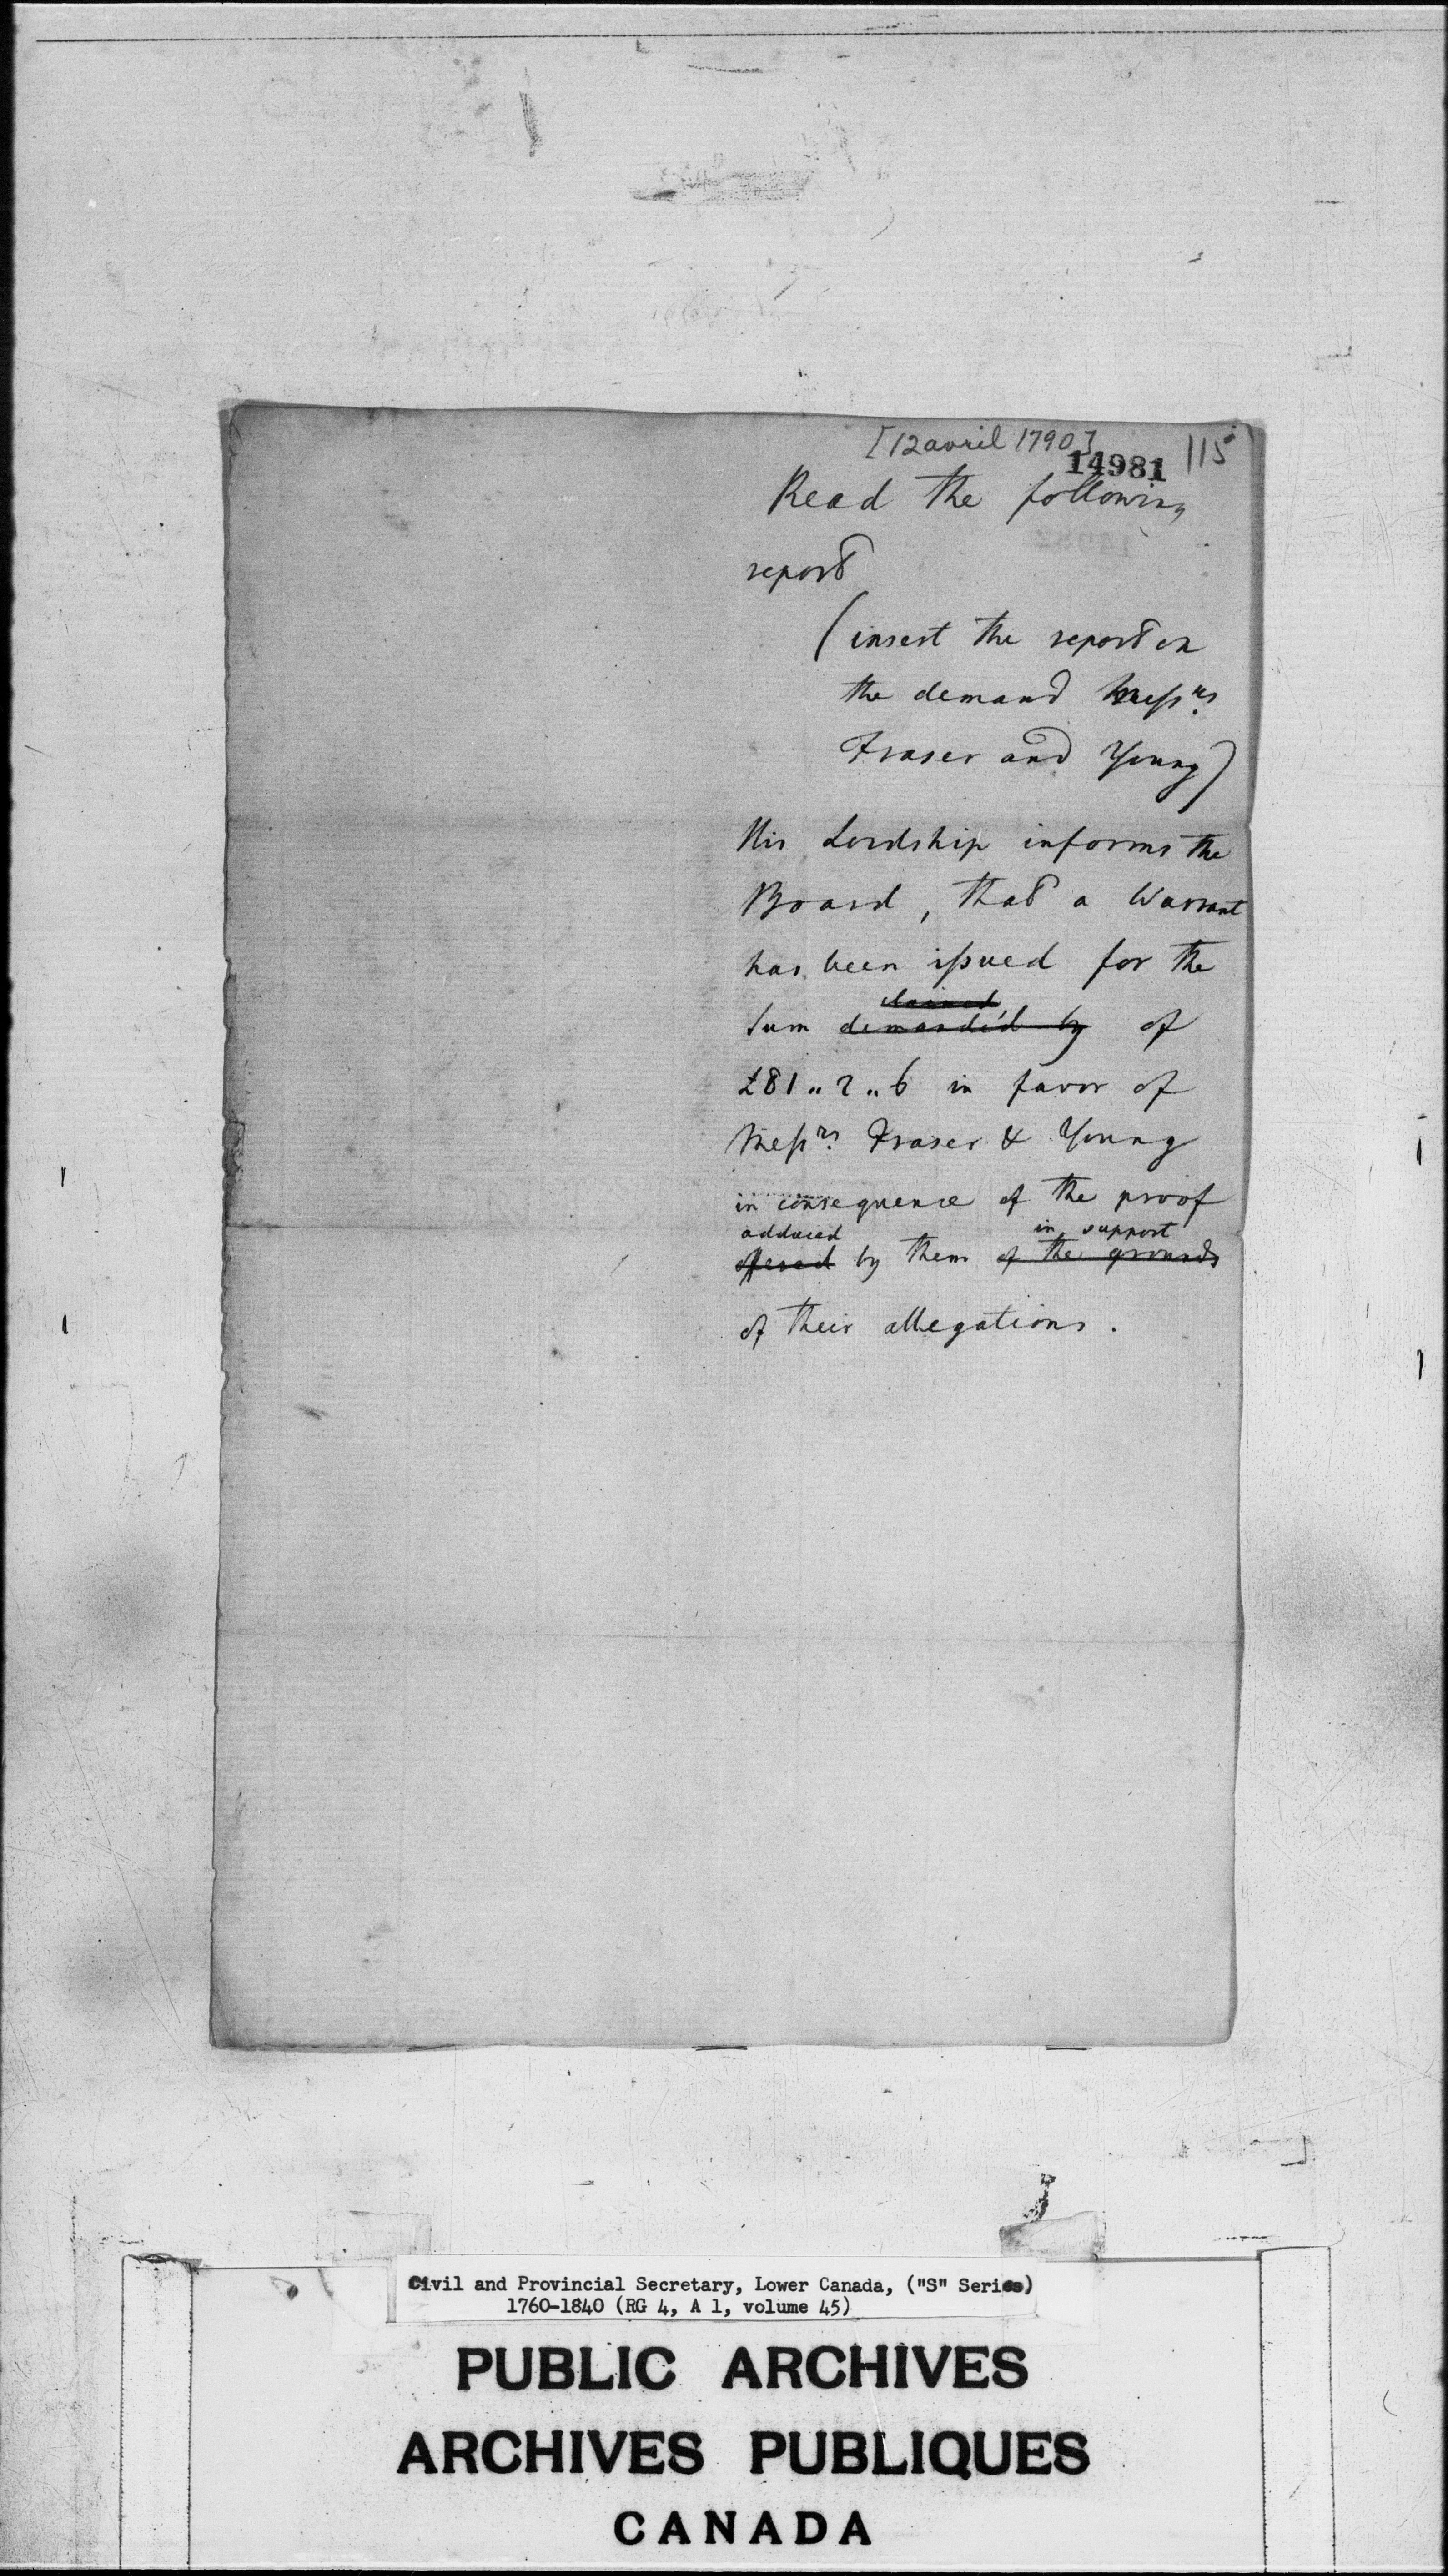 [12 avril 1790]
14981
115
Read the following
report
(insert the report on
the demand Messrs
Fraser and Young)
His Lordship informs the
Board, that a Warrant
has been issued for the
claimed
Sum demanded by of
£81 „ 2 „ 6 in favor of
Messrs. Fraser & Young
in consequence of the proof
adduced in support
offered by them of the grounds
of their allegations.
Civil and Provincial Secretary, Lower Canada, ("S" Series)
1760-1840 (RG 4, A 1, volume 45)
PUBLIC ARCHIVES
ARCHIVES PUBLIQUES
CANADA